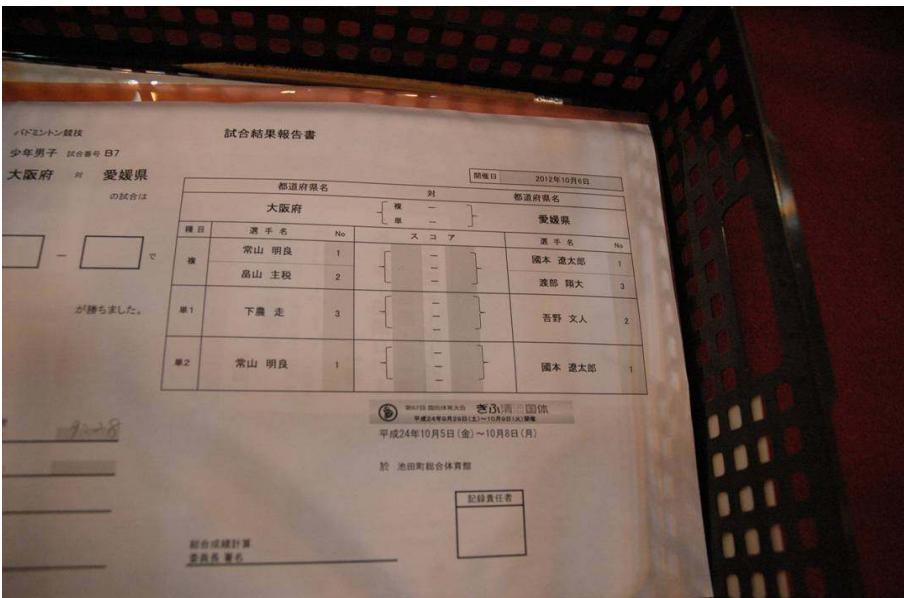 バドミントン競技
少年男子 試合番号 B7
大阪府 対 愛媛県
の試合は
－ で
が勝ちました。
9:28
試合結果報告書
開催日 2012年10月6日
都道府県名 対 都道府県名
大阪府 複 － 単 － 愛媛県
種目 選手名 No スコア 選手名 No
複 常山 明良 1 － 國本 遼太郎 1
畠山 主税 2 － 渡部 翔大 3
単1 下農 走 3 － 吾野 文人 2
単2 常山 明良 1 － 國本 遼太郎 1
第67回 国民体育大会 ぎふ清流国体
平成24年9月29日(土)～10月9日(火)開催
平成24年10月5日(金)～10月8日(月)
於 池田町総合体育館
記録責任者
総合成績計算
委員長 署名